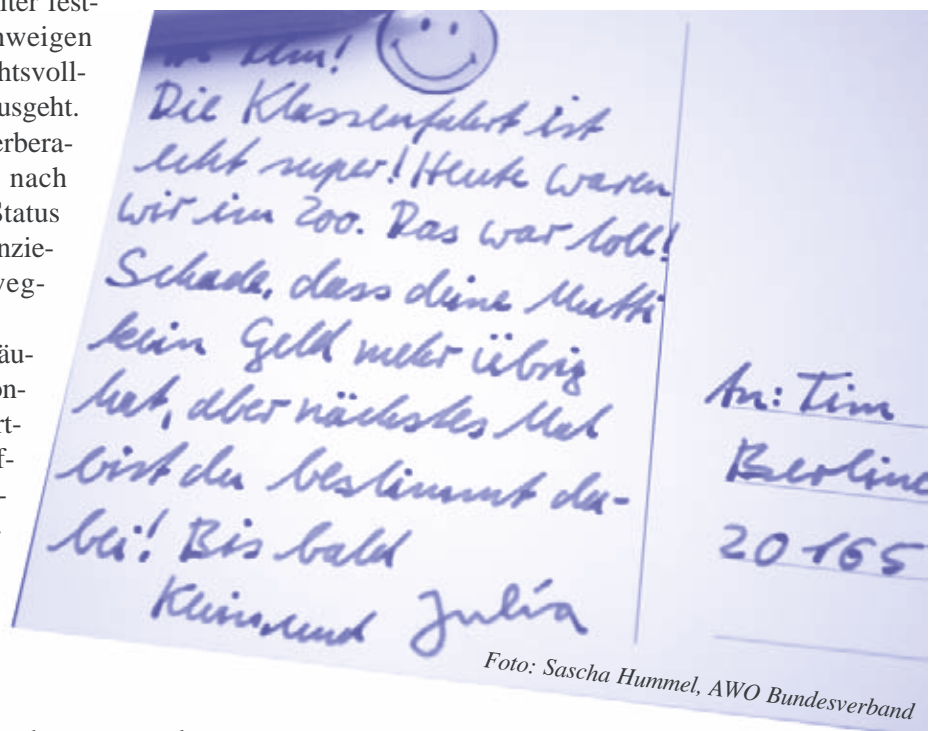 iter fest-
hweigen
htsvoll-
usgeht.
erbera-
nach
Status
nzie-
veg-
äu-
on-
rt-
f-
-
Tim!
Die Klassenfahrt ist
echt super! Heute waren
wir im Zoo. Das war toll!
Schade, dass deine Mutti
kein Geld mehr übrig
hat, aber nächstes Mal
bist du bestimmt da-
bei! Bis bald
und Julia
An: Tim
Berline
20165
Foto: Sascha Hummel, AWO Bundesverband